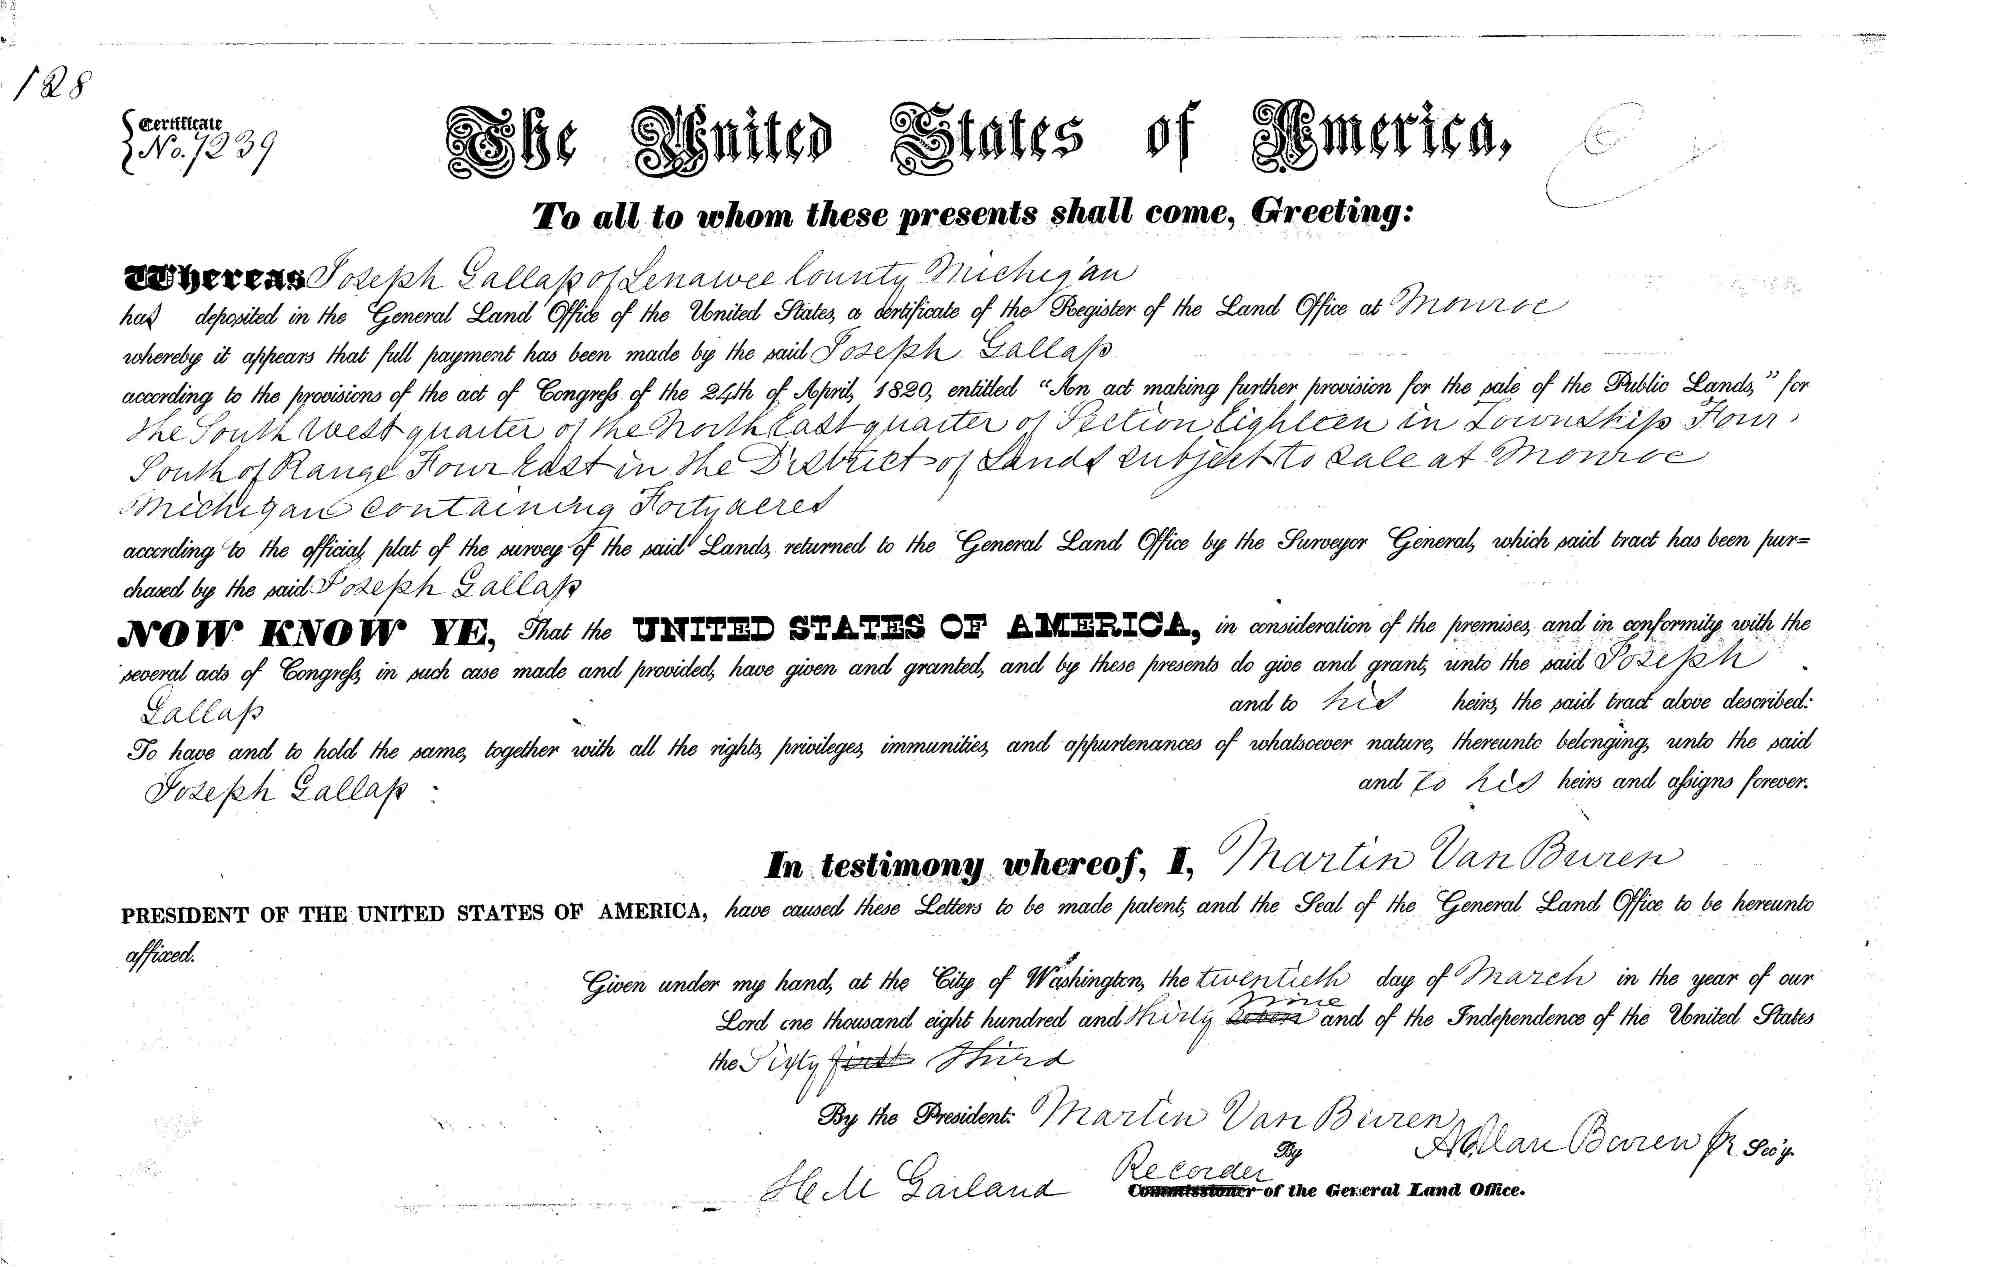 128
Certificate
No. 7239
The United States of America,
To all to whom these presents shall come, Greeting:
Whereas Joseph Gallap of Lenawee County Michigan
has deposited in the General Land Office of the United States, a certificate of the Register of the Land Office at Monroe
whereby it appears that full payment has been made by the said Joseph Gallap
according to the provisions of the act of Congress of the 24th of April, 1820, entitled "An act making further provision for the sale of the Public Lands," for
the South West quarter of the North East quarter of Section Eighteen in Township Four
South of Range Four East in the District of Lands subject to sale at Monroe
Michigan containing Forty acres
according to the official plat of the survey of the said Lands, returned to the General Land Office by the Surveyor General, which said tract has been pur=
chased by the said Joseph Gallap
NOW KNOW YE, That the UNITED STATES OF AMERICA, in consideration of the premises, and in conformity with the
several acts of Congress, in such case made and provided, have given and granted, and by these presents do give and grant, unto the said Joseph
Gallap and to his heirs, the said tract above described:
To have and to hold the same, together with all the rights, privileges, immunities, and appurtenances of whatsoever nature, thereunto belonging, unto the said
Joseph Gallap : and to his heirs and assigns forever.
In testimony whereof, I, Martin Van Buren
PRESIDENT OF THE UNITED STATES OF AMERICA, have caused these Letters to be made patent, and the Seal of the General Land Office to be hereunto
affixed.
Given under my hand, at the City of Washington, the twentieth day of March in the year of our
Lord one thousand eight hundred and thirty seven nine and of the Independence of the United States
the Sixty first Third
By the President: Martin Van Buren
By M. Van Buren Jr Sec'y.
H M Garland Recorder
Commissioner of the General Land Office.